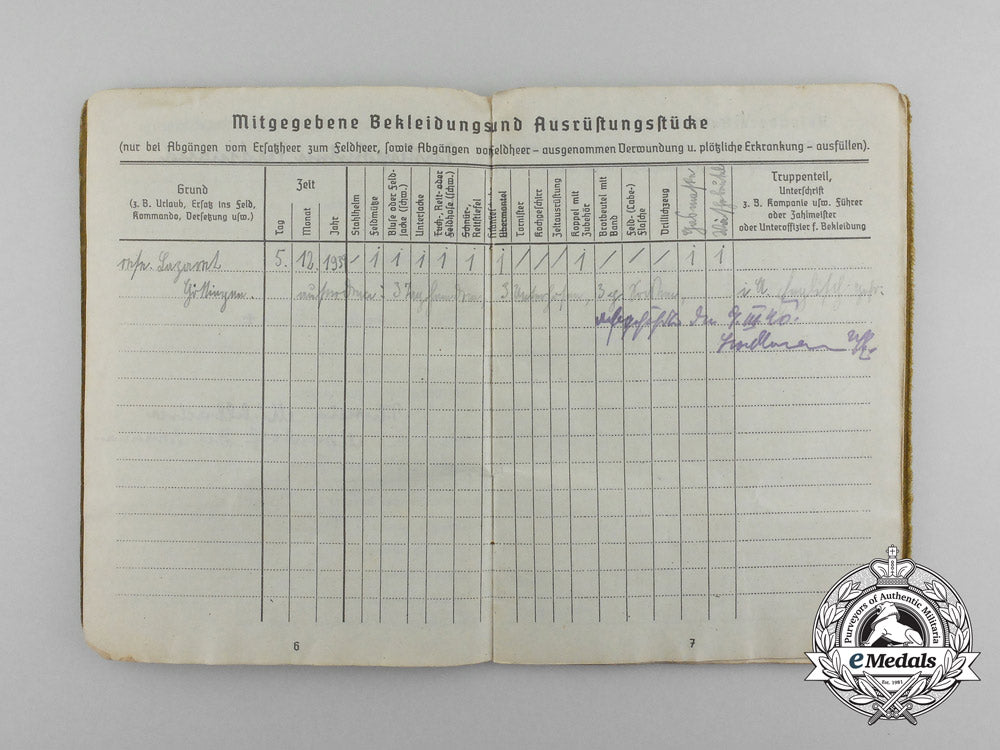 Mitgegebene Bekleidungs und Ausrüstungsstücke
(nur bei Abgängen vom Ersatzheer zum Feldheer, sowie Abgängen vom Feldheer – ausgenommen Verwundung u. plötzliche Erkrankung – ausfüllen).
Grund
(z. B. Urlaub, Ersatz ins Feld,
Kommando, Versetzung usw.)
Zeit
Tag
Monat
Jahr
Stahlhelm
Feldmütze
Bluse oder Feld-
jacke (schw.)
Unterjacke
Tuch-, Reit- oder
Feldhose (schw.)
Schnür-,
Reitstiefel
Mantel
Übermantel
Tornister
Kochgeschirr
Zeltausrüstung
Koppel mit
Zubehör
Brotbeutel mit
Band
Feld-(Labe-)
flasche
Drillichzeug
Gasmaske
Truppenteil,
Unterschrift
z. B. Kompanie usw. Führer
oder Zahlmeister
oder Unteroffizier f. Bekleidung
Lazarett 5. 12. 1939 / 1 1 1 1 1 1 / / / 1 / / / 1 1
Göttingen. außerdem: 3 3 Unterhosen, 3
den
6
7
Purveyors of Authentic Militaria
eMedals
Est. 1981